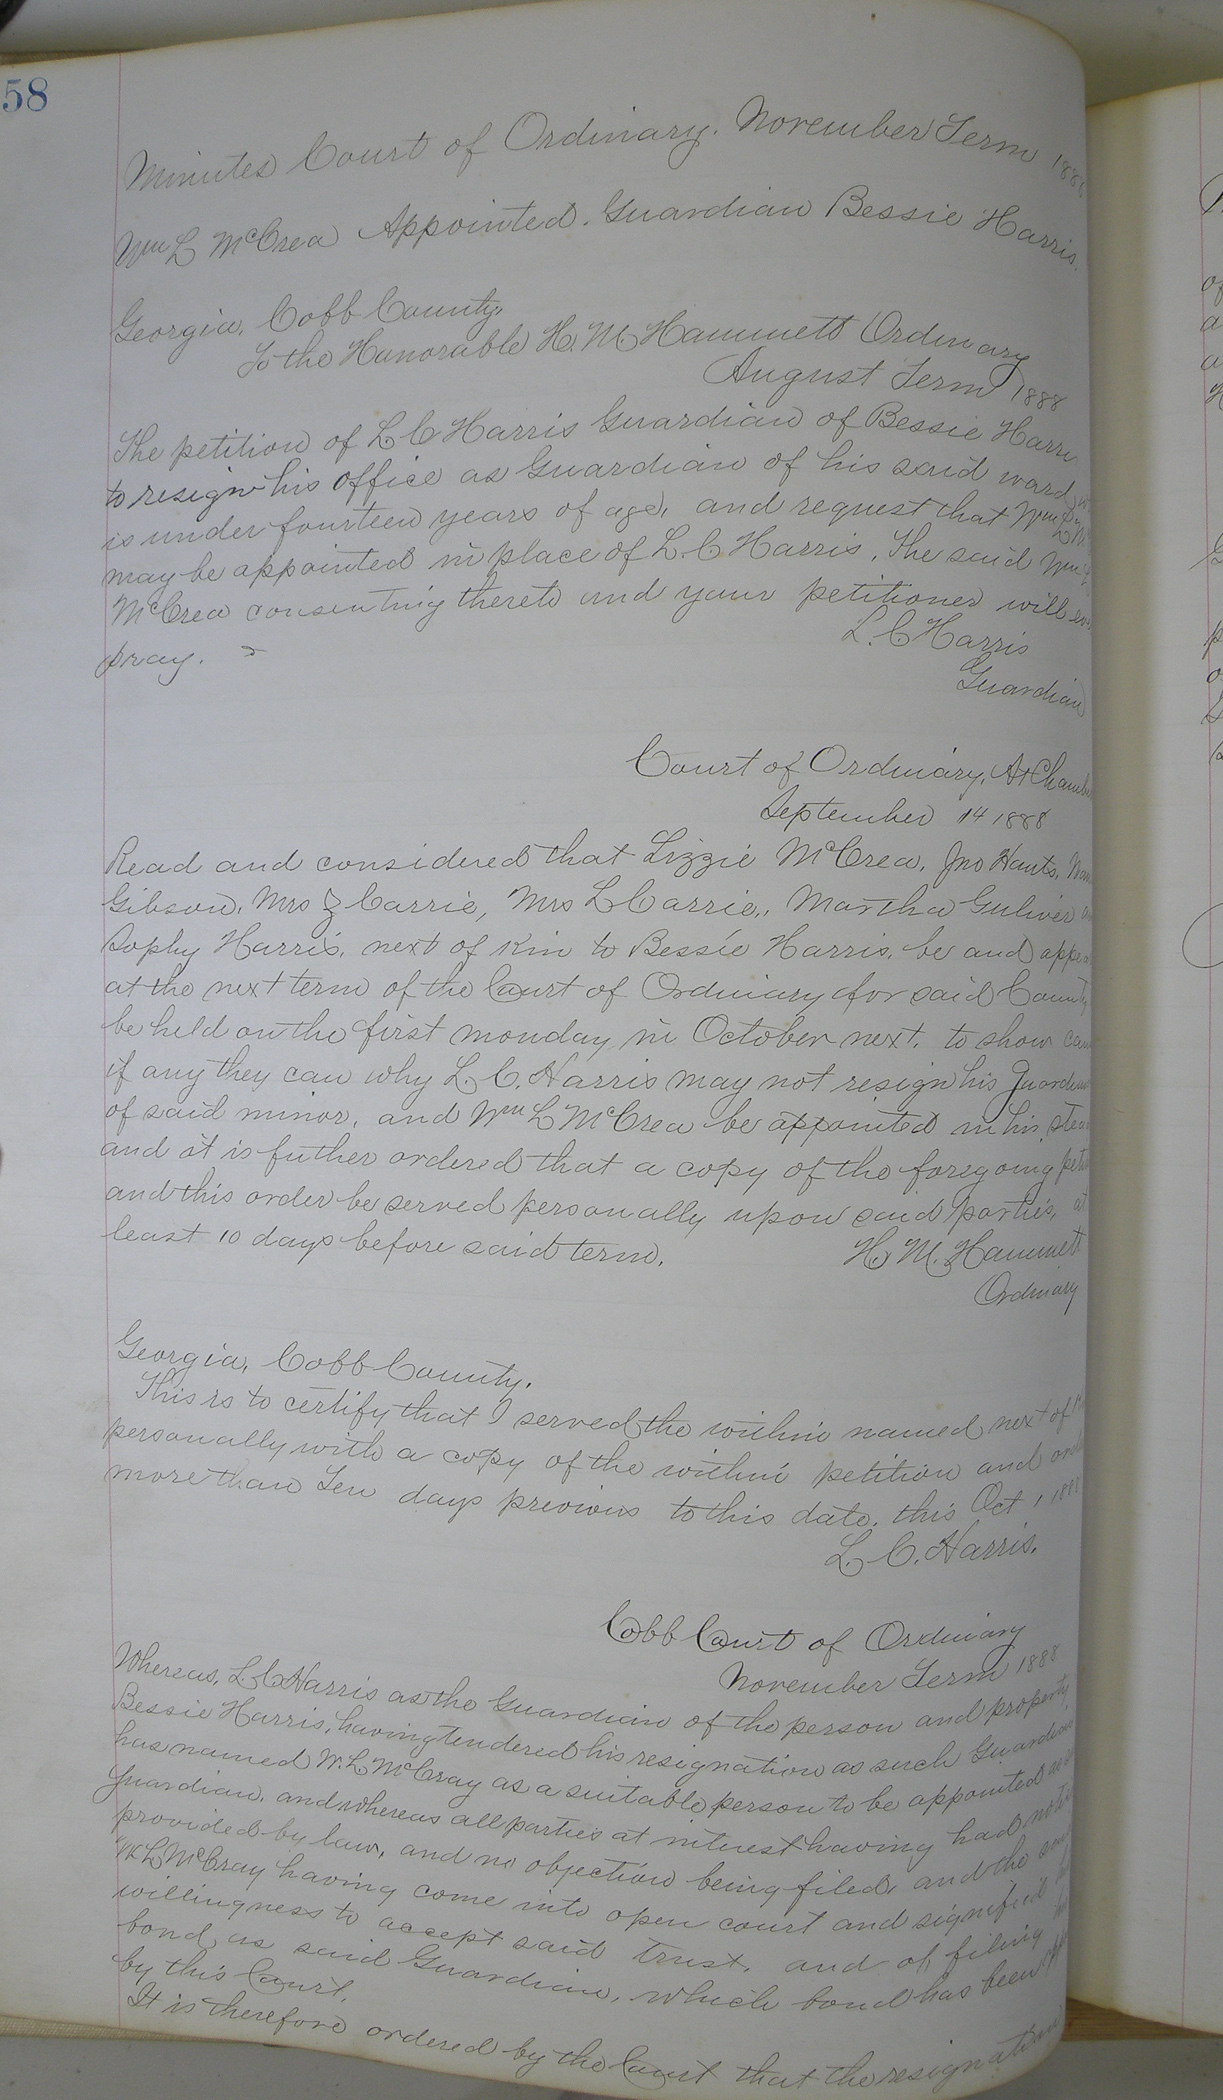 58
Minutes Court of Ordinary. November Term 188
Wm L McCrea Appointed. Guardian Bessie Harris.
Georgia, Cobb County,
To the Honorable H. M. Hammett Ordinary
August Term 1888
The petition of L C Harris Guardian of Bessie Harri
to resign his office as Guardian of his said ward
is under fourteen years of age, and request that Wm L Mc
may be appointed in place of L C Harris. The said Wm L
McCrea consenting thereto and your petitioner will ev
pray.
L. C Harris
Guardian
Court of Ordinary, At Chamb
September 14 1888
Read and considered that Lizzie McCrea, Jno Hants,
Gibson, Mrs Z Carrie, Mrs L Carrie,, Martha Guliver
Sophy Harris, next of Kin to Bessie Harris, be and appe
at the next term of the Court of Ordinary for said County
be held on the first monday in October next. to show cau
if any they can why L. C. Harris may not resign his Guardian
of said minor, and Wm L McCrea be appointed in his stea
and it is futher ordered that a copy of the foregoing peti
and this order be served personally upon said parties, at
least 10 days before said term.
H. M. Hammett
Ordinary
Georgia, Cobb County.
This is to certify that I served the within named next of
personally with a copy of the within petition and ord
more than Ten days previous to this date. this Oct 1 1888
L. C. Harris.
Cobb Court of Ordinary
November Term 1888
Whereas, L. C Harris as the Guardian of the person and property
Bessie Harris, having tendered his resignation as such Guardian
has named W. L McCray as a suitable person to be appointed
Guardian, and whereas all parties at interest having had notice
provided by law, and no objection being filed, and the said
W L McCray having come into open court and signified
willingness to accept said trust, and of filing
bond as said Guardian, which bond has been
by this Court.
It is therefore ordered by the Court that the resignation